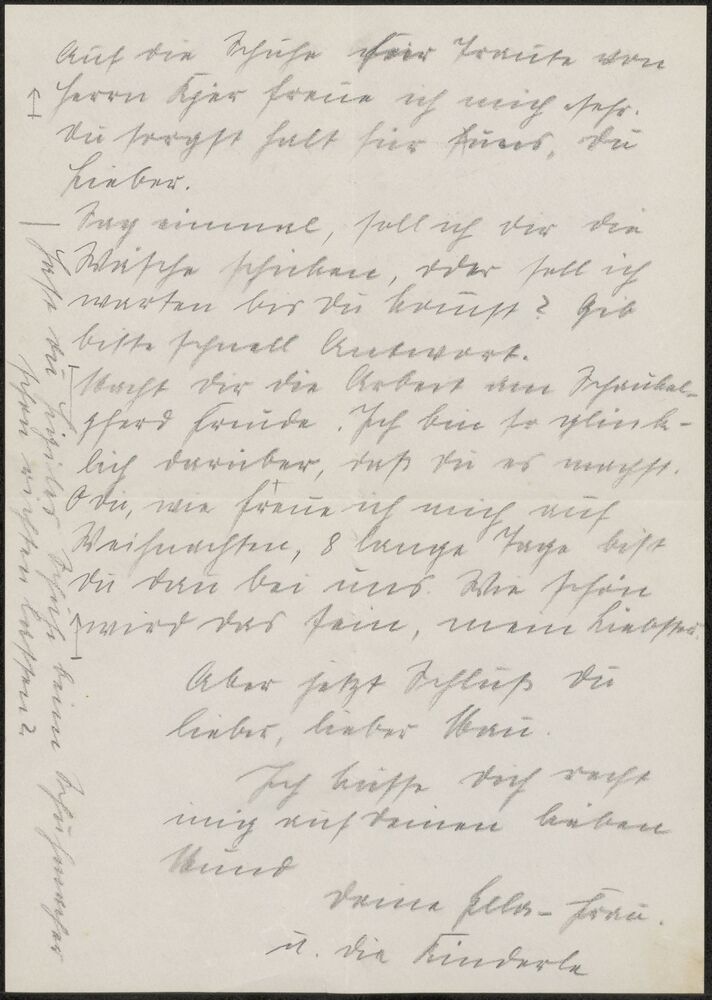 Auf die Schuhe für Traute von
Herrn Kjer freue ich mich sehr.
Du sorgst halt für uns, Du
Lieber.
Sag einmal, soll ich dir die
Wäsche schicken, oder soll ich
warten bis Du kommst? Gib
bitte schnell Antwort.
Macht dir die Arbeit am Schaukel-
pferd Freude. Ich bin so glück-
lich darüber, daß Du es machst.
O du, wie freue ich mich auf
Weihnachten, 8 lange Tage bist
Du dan bei uns. Wie schön
wird das sein, mein Liebster.
Aber jetzt Schluß Du
lieber, lieber Mau.
Ich küsse Dich recht
inig auf deinen lieben
Mund
Deine Ella-Frau.
u. die Kinderle
Hast du Schuh beim Schuhmacher
schon richten lassen?